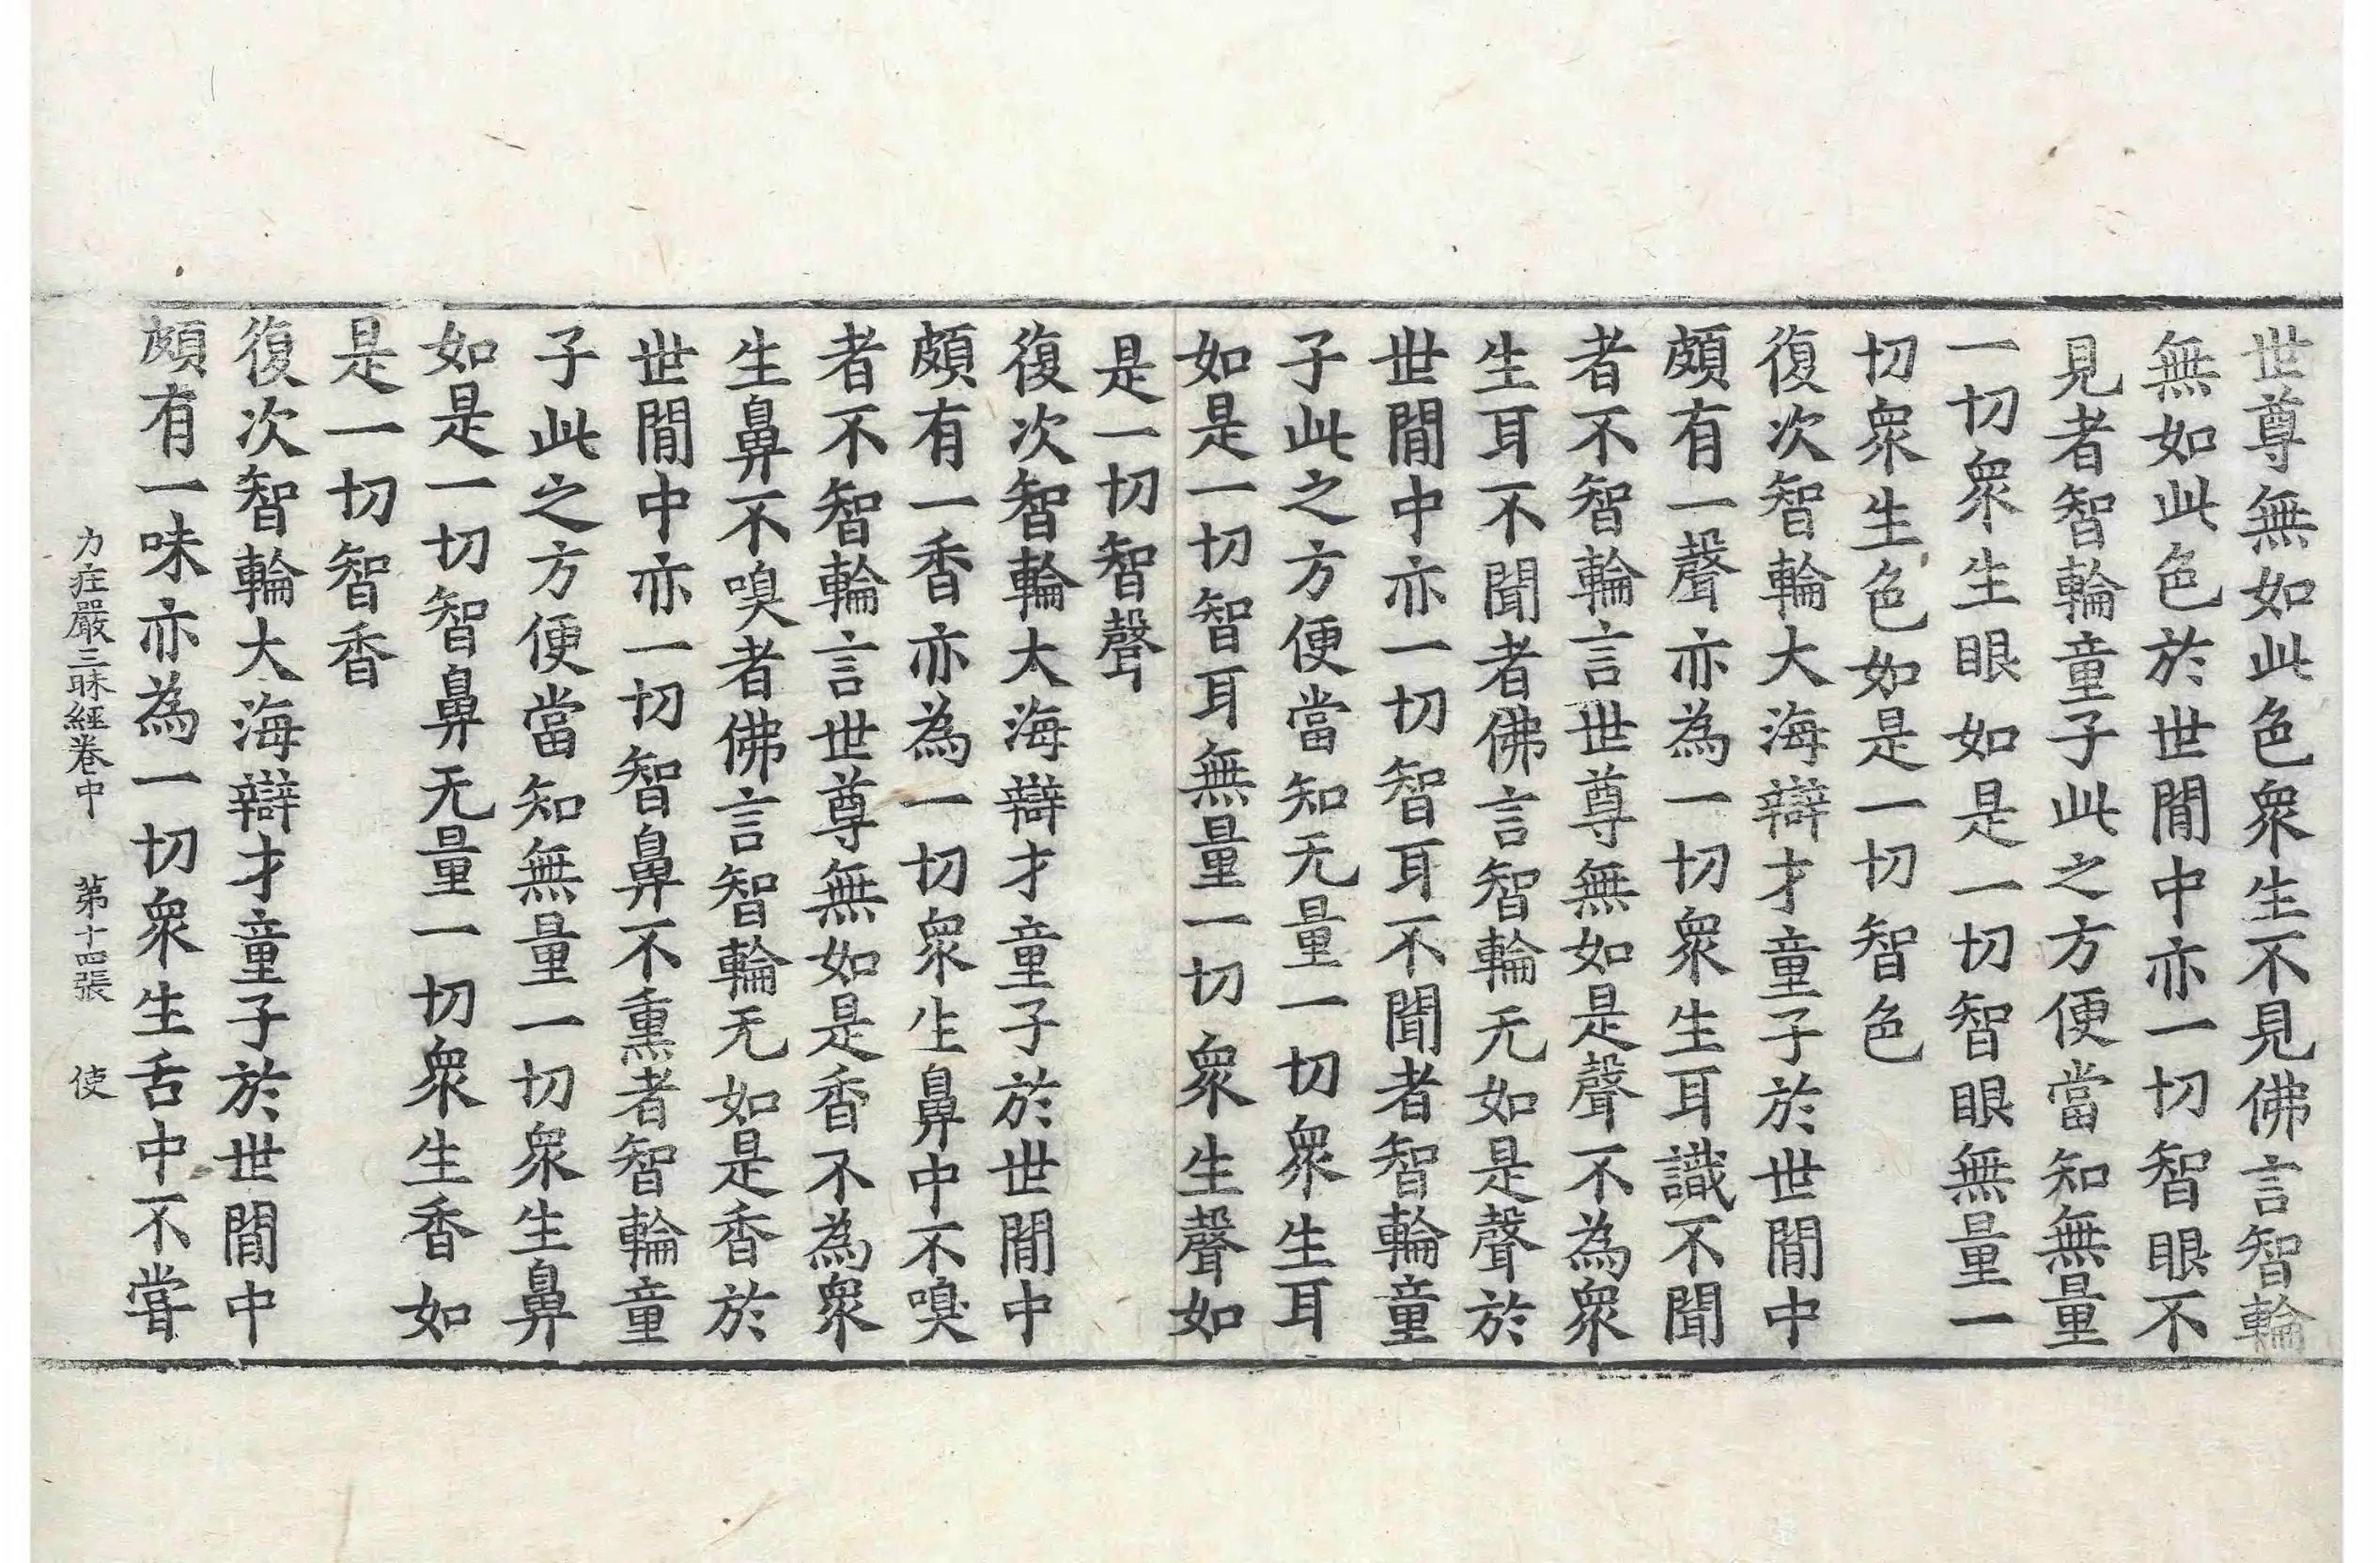 世尊無如此色衆生不見佛言智輪
無如此色於世閒中亦一切智眼不
見者智輪童子此之方便當知無量
一切衆生眼如是一切智眼無量一
切衆生色如是一切智色
復次智輪大海辯才童子於世閒中
頗有一聲亦為一切衆生耳識不聞
者不智輪言世尊無如是聲不為衆
生耳不聞者佛言智輪无如是聲於
世閒中亦一切智耳不聞者智輪童
子此之方便當知无量一切衆生耳
如是一切智耳無量一切衆生聲如
是一切智聲
復次智輪大海辯才童子於世閒中
頗有一香亦為一切衆生鼻中不嗅
者不智輪言世尊無如是香不為衆
生鼻不嗅者佛言智輪无如是香於
世閒中亦一切智鼻不熏者智輪童
子此之方便當知無量一切衆生鼻
如是一切智鼻无量一切衆生香如
是一切智香
復次智輪大海辯才童子於世閒中
頗有一味亦為一切衆生舌中不甞
力庄嚴三昧經卷中 第十四張 使